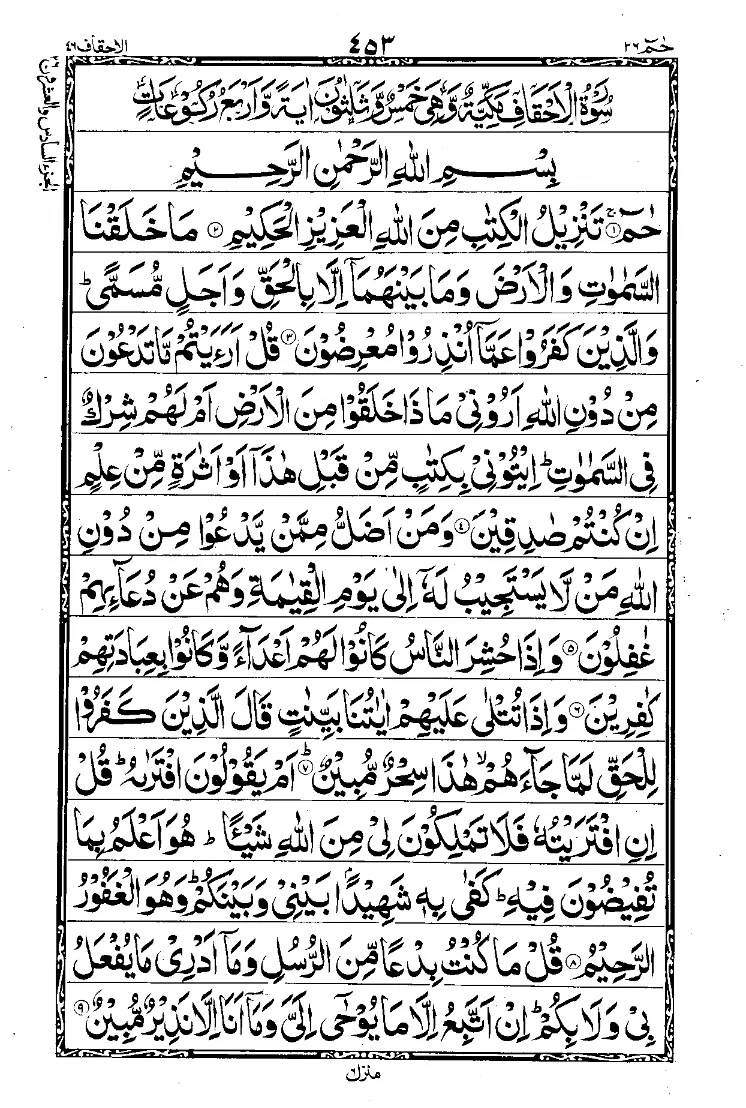 حٰمٓ ٢٦
٤٥٣
الاحقاف ٤٦
الجزء السادس والعشرون
سُوْرَةُ الْاَحْقَافِ مَكِّيَّةٌ وَّهِىَ خَمْسٌ وَّثَلٰثُوْنَ اٰيَةً وَّاَرْبَعُ رُكُوْعَاتٍ
بِسْمِ اللّٰهِ الرَّحْمٰنِ الرَّحِيْمِ
حٰمٓ ۚ﴿۱﴾ تَنْزِيْلُ الْكِتٰبِ مِنَ اللّٰهِ الْعَزِيْزِ الْحَكِيْمِ ﴿۲﴾ مَا خَلَقْنَا
السَّمٰوٰتِ وَالْاَرْضَ وَمَا بَيْنَهُمَاۤ اِلَّا بِالْحَقِّ وَاَجَلٍ مُّسَمًّى ؕ
وَالَّذِيْنَ كَفَرُوْا عَمَّاۤ اُنْذِرُوْا مُعْرِضُوْنَ ﴿۳﴾ قُلْ اَرَءَيْتُمْ مَّا تَدْعُوْنَ
مِنْ دُوْنِ اللّٰهِ اَرُوْنِىْ مَاذَا خَلَقُوْا مِنَ الْاَرْضِ اَمْ لَهُمْ شِرْكٌ
فِى السَّمٰوٰتِ ؕ اِيْتُوْنِىْ بِكِتٰبٍ مِّنْ قَبْلِ هٰذَاۤ اَوْ اَثٰرَةٍ مِّنْ عِلْمٍ
اِنْ كُنْتُمْ صٰدِقِيْنَ ﴿۴﴾ وَمَنْ اَضَلُّ مِمَّنْ يَّدْعُوْا مِنْ دُوْنِ
اللّٰهِ مَنْ لَّا يَسْتَجِيْبُ لَهٗۤ اِلٰى يَوْمِ الْقِيٰمَةِ وَهُمْ عَنْ دُعَآئِهِمْ
غٰفِلُوْنَ ﴿۵﴾ وَاِذَا حُشِرَ النَّاسُ كَانُوْا لَهُمْ اَعْدَآءً وَّكَانُوْا بِعِبَادَتِهِمْ
كٰفِرِيْنَ ﴿۶﴾ وَاِذَا تُتْلٰى عَلَيْهِمْ اٰيٰتُنَا بَيِّنٰتٍ قَالَ الَّذِيْنَ كَفَرُوْا
لِلْحَقِّ لَمَّا جَآءَهُمْ ۙ هٰذَا سِحْرٌ مُّبِيْنٌ ؕ﴿۷﴾ اَمْ يَقُوْلُوْنَ افْتَرٰىهُ ؕ قُلْ
اِنِ افْتَرَيْتُهٗ فَلَا تَمْلِكُوْنَ لِىْ مِنَ اللّٰهِ شَيْـًٔا ؕ هُوَ اَعْلَمُ بِمَا
تُفِيْضُوْنَ فِيْهِ ؕ كَفٰى بِهٖ شَهِيْدًۢا بَيْنِىْ وَبَيْنَكُمْ ؕ وَهُوَ الْغَفُوْرُ
الرَّحِيْمُ ﴿۸﴾ قُلْ مَا كُنْتُ بِدْعًا مِّنَ الرُّسُلِ وَمَاۤ اَدْرِىْ مَا يُفْعَلُ
بِىْ وَلَا بِكُمْ ؕ اِنْ اَتَّبِعُ اِلَّا مَا يُوْحٰۤى اِلَىَّ وَمَاۤ اَنَا اِلَّا نَذِيْرٌ مُّبِيْنٌ ﴿۹﴾
منزل ٦